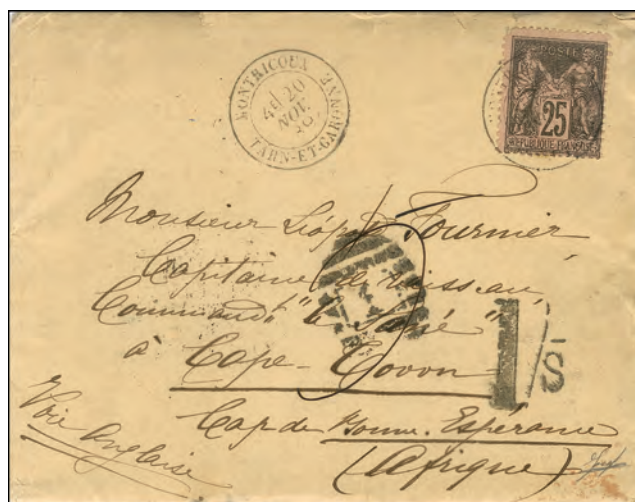 MONTRICOUX
20
NOV.
TARN-ET-GARONNE
POSTE
25
REPUBLIQUE FRANCAISE
Monsieur Léop. Fournier
Capitaine de vaisseau,
Command.t "le Sané"
à Cape-Town
Cap de Bonne-Espérance
(Afrique)
Voie Anglaise